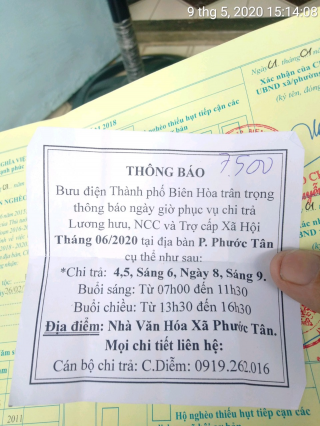 9 thg 5, 2020 15:14:08
THÔNG BÁO
7.500
Bưu điện Thành phố Biên Hòa trân trọng
thông báo ngày giờ phục vụ chi trả
Lương hưu, NCC và Trợ cấp Xã Hội
Tháng 06/2020 tại địa bàn P. Phước Tân
cụ thể như sau:
*Chi trả: 4,5, Sáng 6, Ngày 8, Sáng 9.
Buổi sáng: Từ 07h00 đến 11h30
Buổi chiều: Từ 13h30 đến 16h30
Địa điểm: Nhà Văn Hóa Xã Phước Tân.
Mọi chi tiết liên hệ:
Cán bộ chi trả: C.Diễm: 0919.262.016
Ngày 01 tháng 01
Xác nhận của
UBND xã/phường
(ký tên, đóng
nghèo thiếu hụt tiếp cận các
2018
2011
Hộ nghèo thiếu hụt tiếp cận các